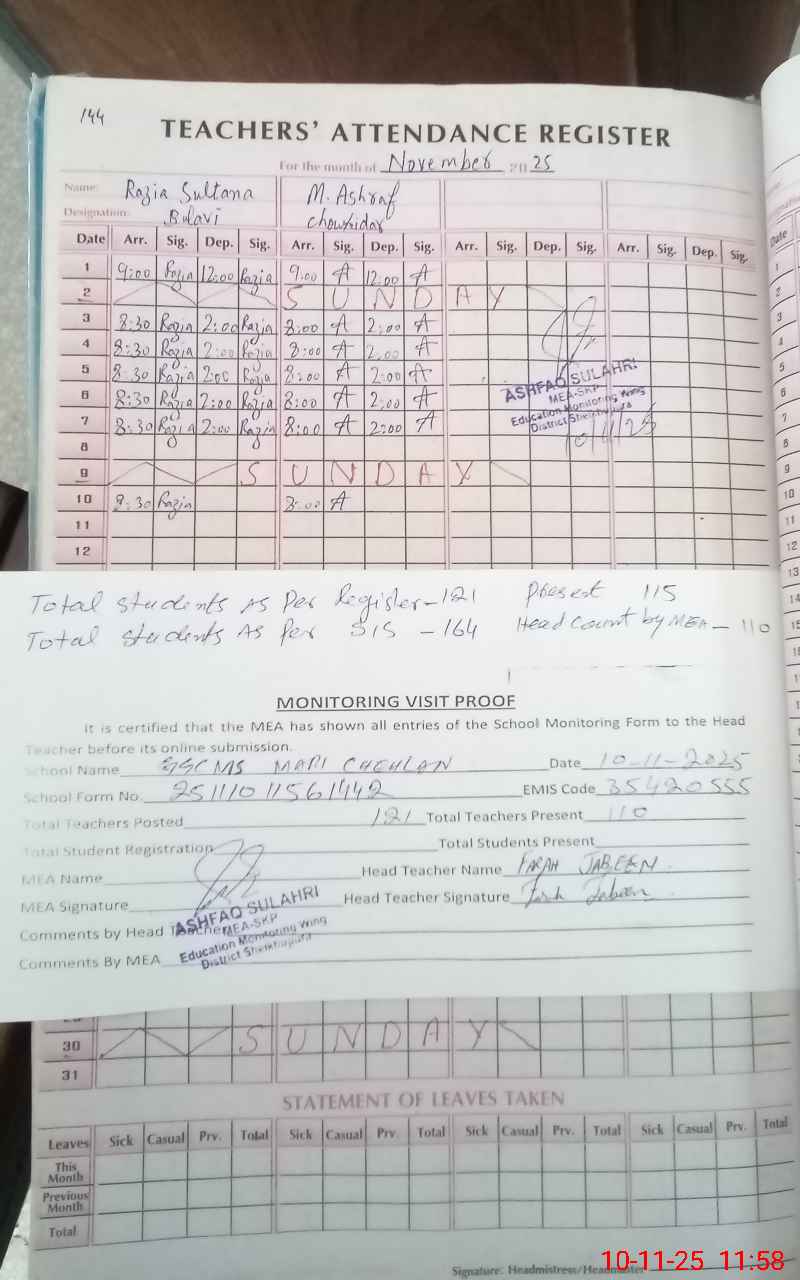 144
TEACHERS' ATTENDANCE REGISTER
For the month of November 2025
Name: Razia Sultana M. Ashraf
Designation: Bulavi Chowkidar
Date Arr. Sig. Dep. Sig. Arr. Sig. Dep. Sig. Arr. Sig. Dep. Sig. Arr. Sig. Dep. Sig.
1 9:00 Razia 12:00 Razia 9:00 A 12:00 A
2 SUNDAY
3 8:30 Razia 2:00 Razia 8:00 A 2:00 A
4 8:30 Razia 2:00 Razia 8:00 A 2:00 A
5 8:30 Razia 2:00 Razia 8:00 A 2:00 A
6 8:30 Razia 2:00 Razia 8:00 A 2:00 A
7 8:30 Razia 2:00 Razia 8:00 A 2:00 A
ASHFAQ SULAHRI
MEA-SKP
Education Monitoring Wing
District Sheikhupura
10/11/25
8
9 SUNDAY
10 8:30 Razia 8:00 A
11
12
Total students As Per Register-121 Present 115
Total students As Per SIS -164 Head Count by MEA- 110
MONITORING VISIT PROOF
It is certified that the MEA has shown all entries of the School Monitoring Form to the Head
Teacher before its online submission.
School Name Date 10-11-2025
School Form No. EMIS Code 35420555
Total Teachers Posted 121 Total Teachers Present 110
Total Student Registration Total Students Present
MEA Name Head Teacher Name FARAH JABEEN
MEA Signature Head Teacher Signature Farah Jabeen
ASHFAQ SULAHRI
MEA-SKP
Education Monitoring Wing
District Sheikhupura
Comments by Head Teacher
Comments By MEA
30 SUNDAY
31
STATEMENT OF LEAVES TAKEN
Leaves Sick Casual Prv. Total Sick Casual Prv. Total Sick Casual Prv. Total Sick Casual Prv. Total
This Month
Previous Month
Total
Signature: Headmistress/Headmaster
10-11-25 11:58